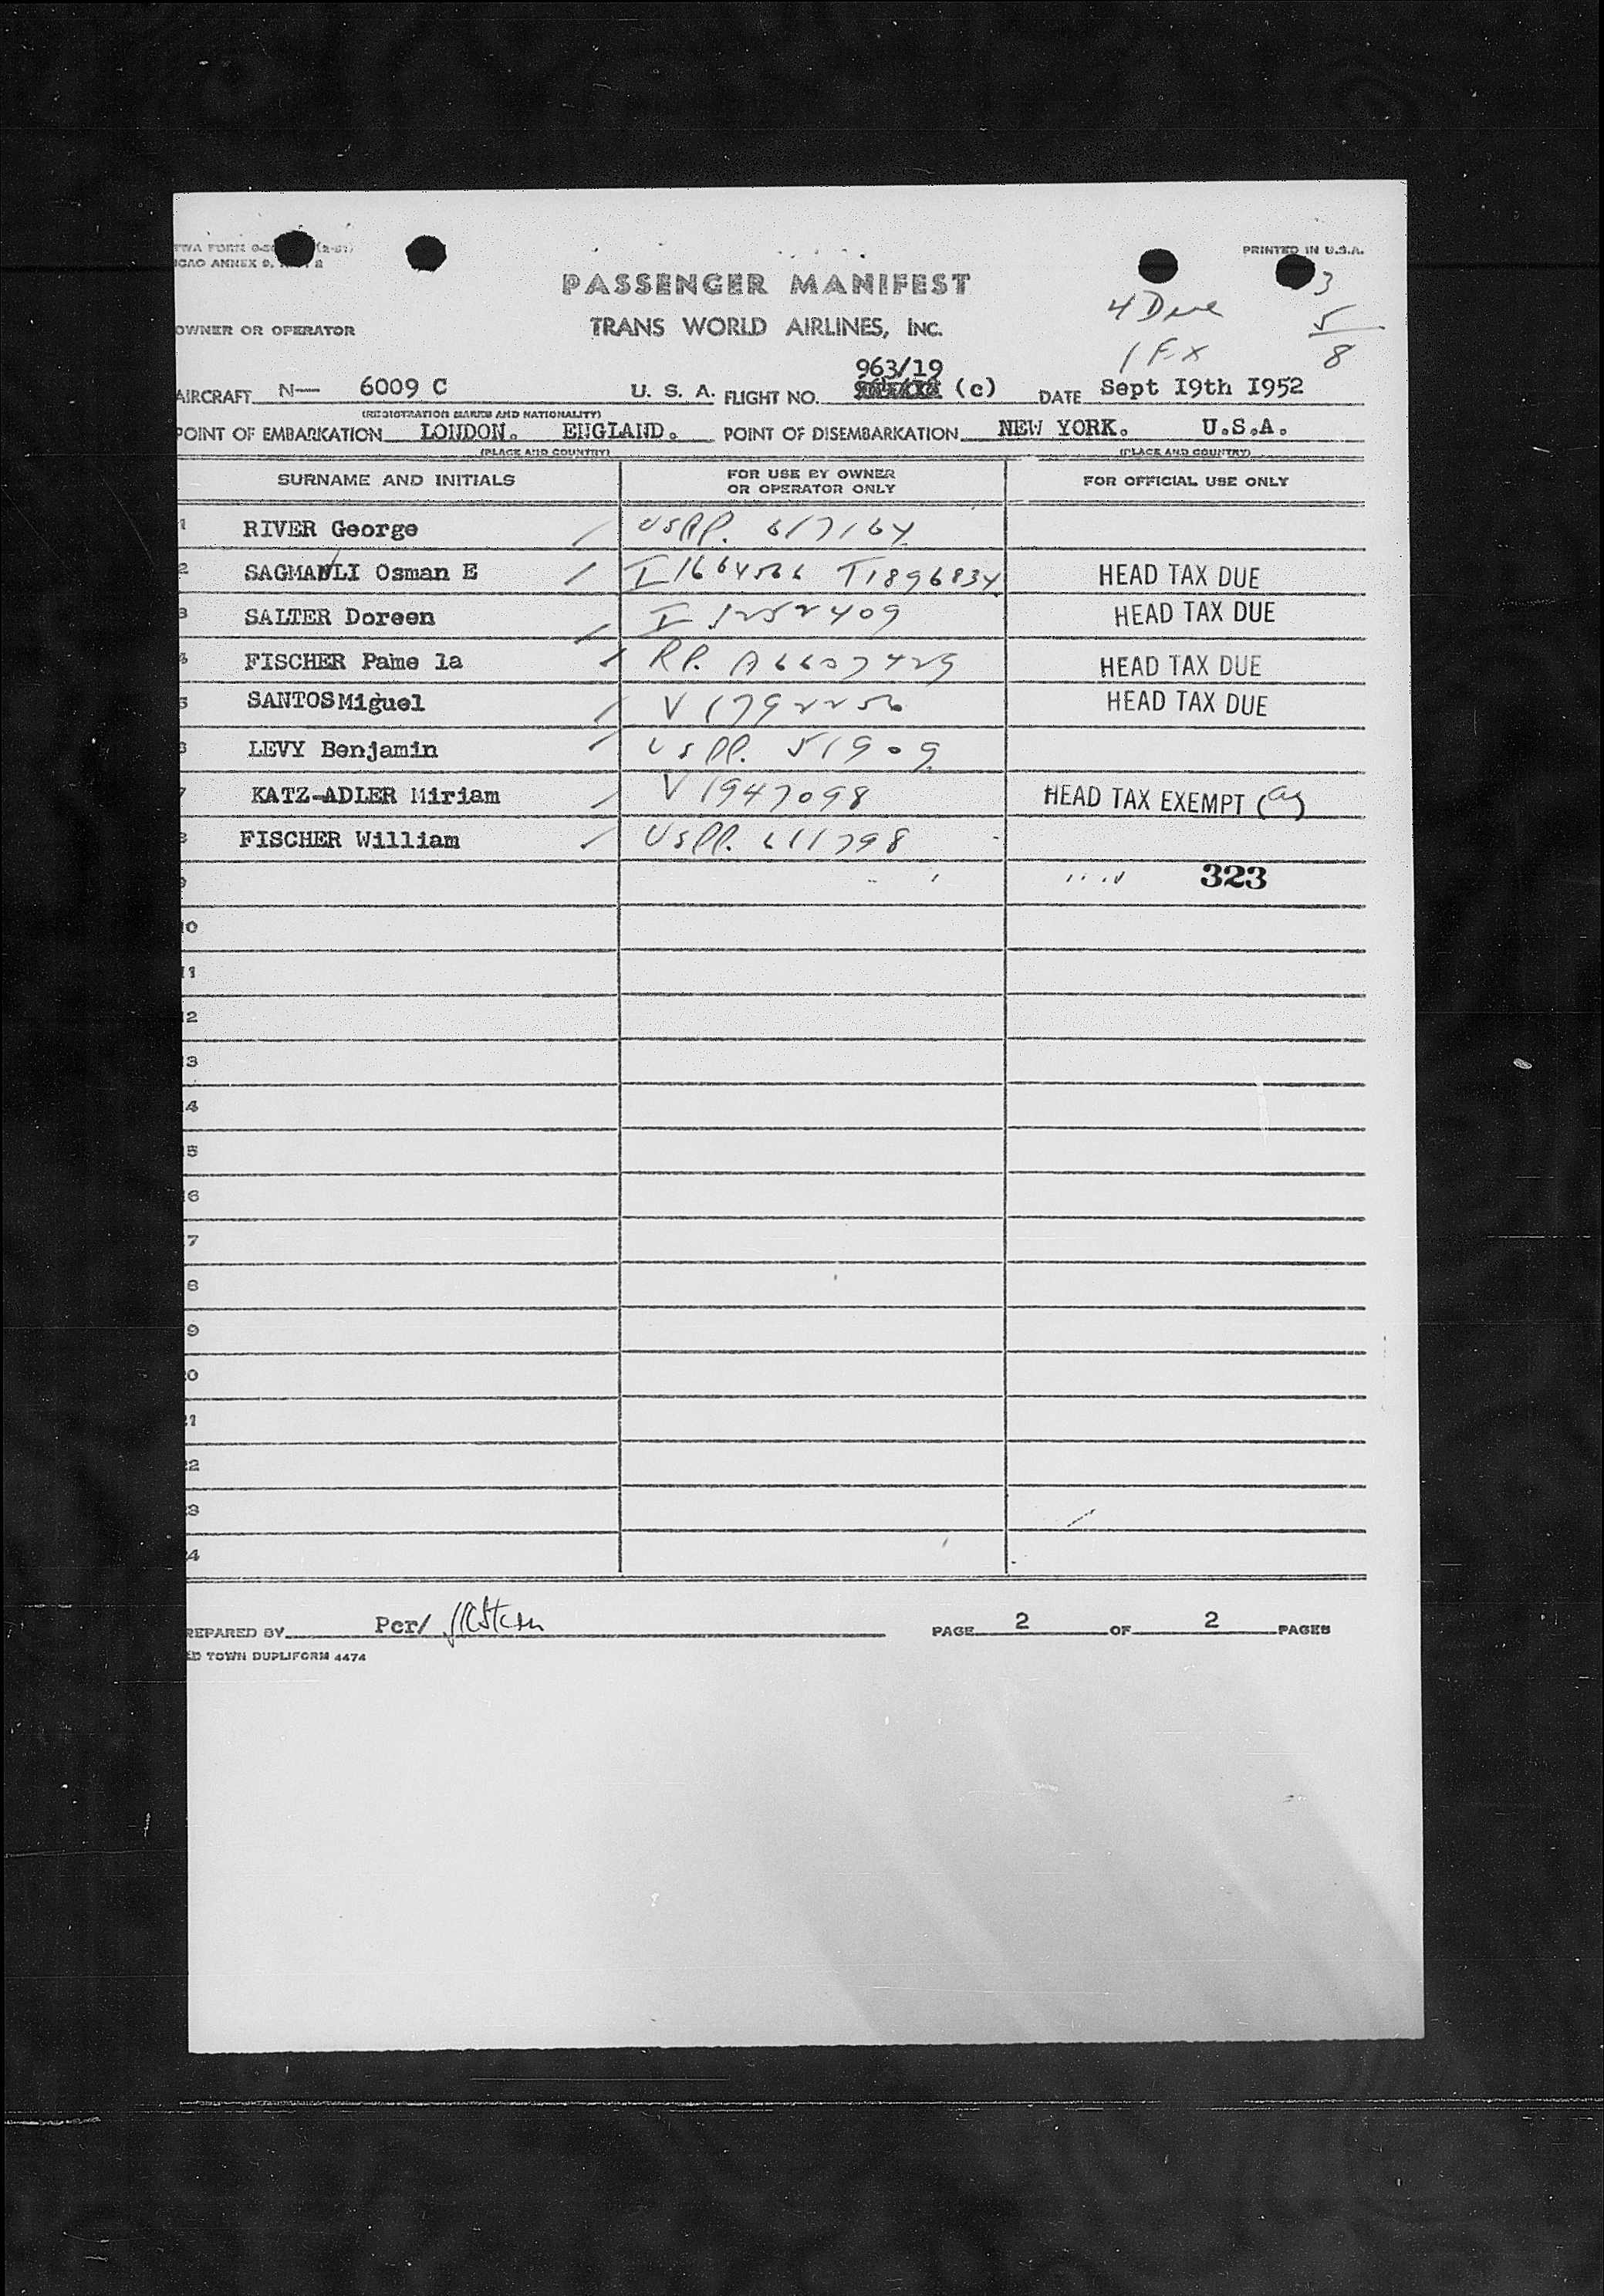 TWA FORM
ICAO ANNEX 9,
PRINTED IN U.S.A.
PASSENGER MANIFEST
3
4 Due
5
OWNER OR OPERATOR TRANS WORLD AIRLINES, INC.
1 Ex
8
963/19
AIRCRAFT N— 6009 C U. S. A. FLIGHT NO. (c) DATE Sept I9th I952
(REGISTRATION MARKS AND NATIONALITY)
POINT OF EMBARKATION LONDON. ENGLAND. POINT OF DISEMBARKATION NEW YORK. U.S.A.
(PLACE AND COUNTRY) (PLACE AND COUNTRY)
SURNAME AND INITIALS FOR USE BY OWNER OR OPERATOR ONLY FOR OFFICIAL USE ONLY
1 RIVER George USPP. 617164
2 SAGMANLI Osman E I 1664566 T1896834 HEAD TAX DUE
3 SALTER Doreen I HEAD TAX DUE
4 FISCHER Pame la RP. A6607429 HEAD TAX DUE
5 SANTOSMiguel V 1792256 HEAD TAX DUE
6 LEVY Benjamin USPP. 51909
7 KATZ-ADLER Miriam V 1947098 HEAD TAX EXEMPT
8 FISCHER William USPP. 611798
9 323
10
11
12
13
14
15
16
17
18
19
20
21
22
23
24
REPARED BY Per/ PAGE 2 OF 2 PAGES
ED TOWN DUPLIFORM 4474